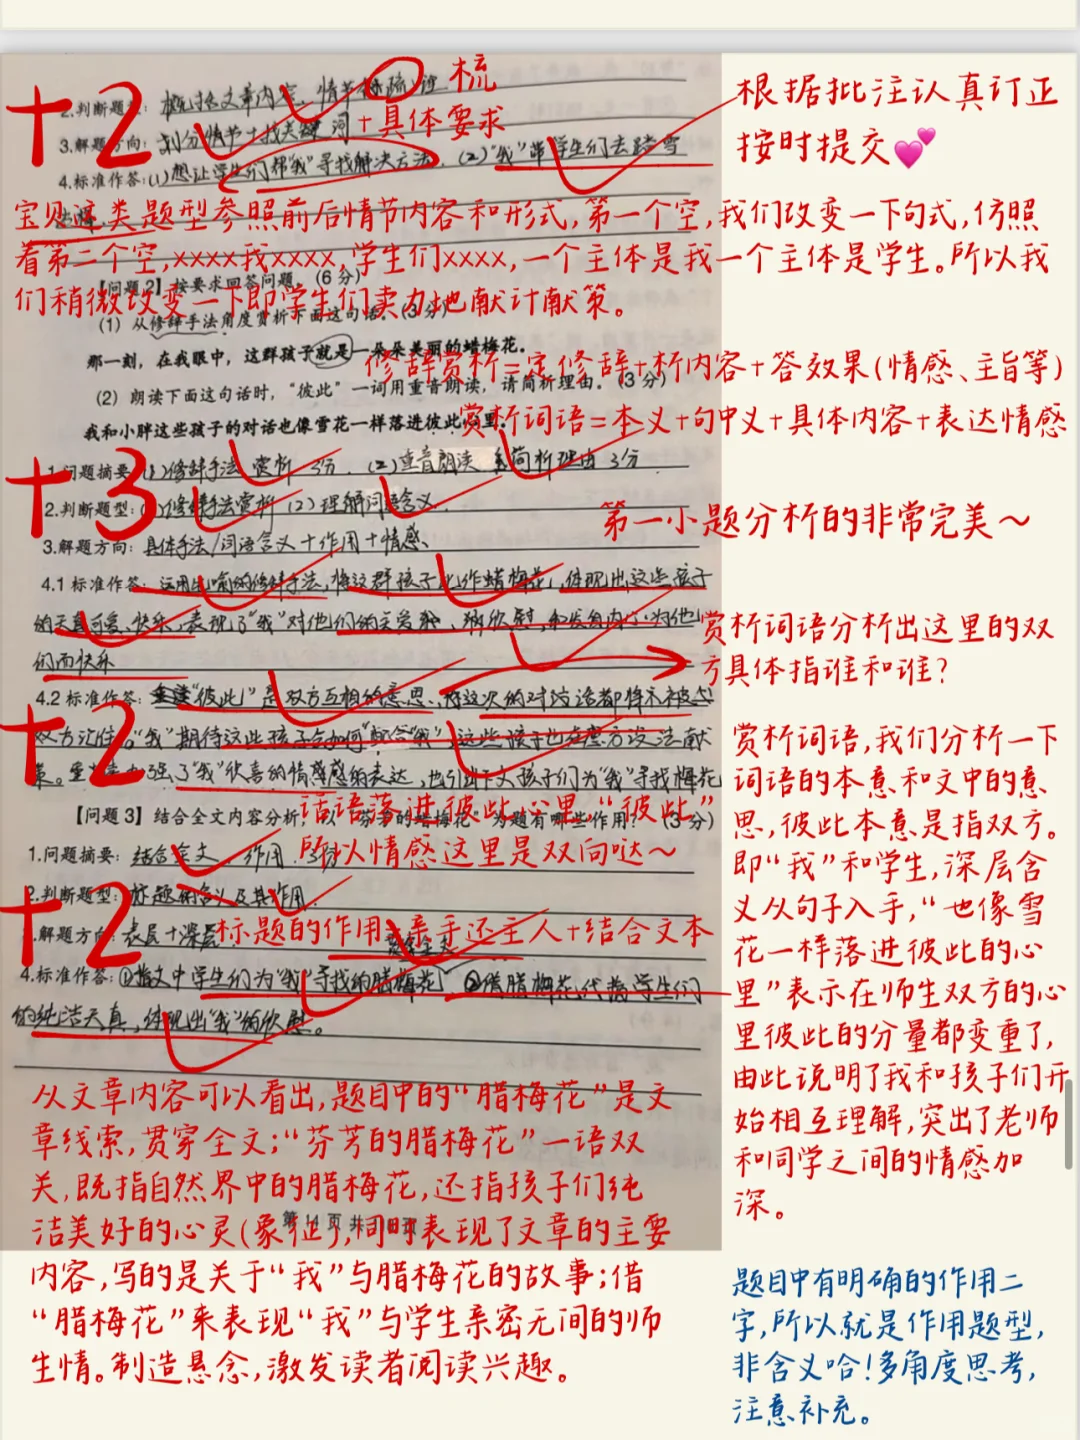 +2
2.判断题型：概括文章内容，情节梳理
梳
3.解题方向：划分情节+找关键词+具体要求
4.标准作答：(1)想让学生们帮"我"寻找解决方法，(2)"我"带学生们去踏雪
根据批注认真订正
按时提交💕
宝贝这类题型参照前后情节内容和形式，第一个空，我们改变一下句式，仿照
着第二个空，xxxx我xxxx，学生们xxxx，一个主体是我一个主体是学生。所以我
们稍微改变一下即学生们卖力地献计献策。
【问题2】按要求回答问题。(6分)
(1) 从修辞手法角度赏析下面这句话。(3分)
那一刻，在我眼中，这群孩子就是一朵朵美丽的蜡梅花。
修辞赏析=定修辞+析内容+答效果(情感、主旨等)
(2) 朗读下面这句话时，"彼此"一词用重音朗读，请简析理由。(3分)
我和小胖这些孩子的对话也像雪花一样落进彼此心里。
赏析词语=本义+句中义+具体内容+表达情感
+3
1.问题摘要：(1)修辞手法 赏析 3分．(2)重音朗读 简析理由 3分
2.判断题型：(1)修辞手法赏析 (2)理解词语含义
3.解题方向：具体手法/词语含义+作用+情感、
第一小题分析的非常完美～
4.1 标准作答：运用比喻的修辞手法，将这群孩子比作蜡梅花，体现出这些孩子
的天真可爱、快乐，表现了"我"对他们的关爱、欣慰，和发自内心为他
们而快乐
赏析词语分析出这里的双
方具体指谁和谁？
+2
4.2 标准作答："彼此"是双方互相的意思、将这次的对话
双方记住。"我"期待这些孩子会如何"配合我"，这些孩子也在想方设法献
策。加强了"我"欣喜的情感的表达，也引出下文孩子们为"我"寻找梅花
话语落进彼此心里，"彼此"
所以情感这里是双向哒～
赏析词语，我们分析一下
词语的本意和文中的意
思，彼此本意是指双方。
即"我"和学生，深层含
义从句子入手，"也像雪
花一样落进彼此的心
里"表示在师生双方的心
里彼此的分量都变重了，
由此说明了我和孩子们开
始相互理解，突出了老师
和同学之间的情感加
深。
【问题3】结合全文内容分析，以"芬芳的蜡梅花"为题有哪些作用？(3分)
1.问题摘要：结合全文．作用．3分
+2
2.判断题型：标题的含义及其作用．
3.解题方向：表层+深层
标题的作用：亲手还主人+结合文本
贯穿全文
4.标准作答：①指文中学生们为"我"寻找的腊梅花 ②借腊梅花代指学生们
的纯洁天真，体现出"我"的欣慰。
从文章内容可以看出，题目中的"腊梅花"是文
章线索，贯穿全文；"芬芳的腊梅花"一语双
关，既指自然界中的腊梅花，还指孩子们纯
洁美好的心灵(象征)，同时表现了文章的主要
内容，写的是关于"我"与腊梅花的故事；借
"腊梅花"来表现"我"与学生亲密无间的师
生情。制造悬念，激发读者阅读兴趣。
题目中有明确的作用二
字，所以就是作用题型，
非含义哈！多角度思考，
注意补充。